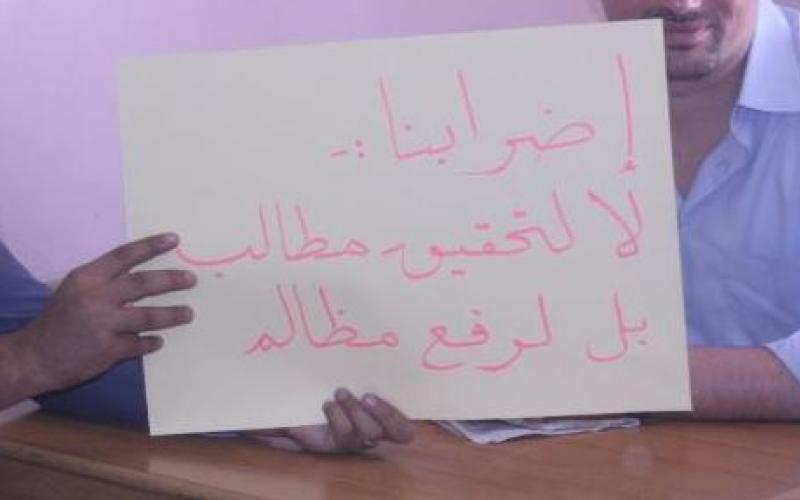 إضرابنا :-
لا لتحقيق مطالب
بل لرفع مظالم